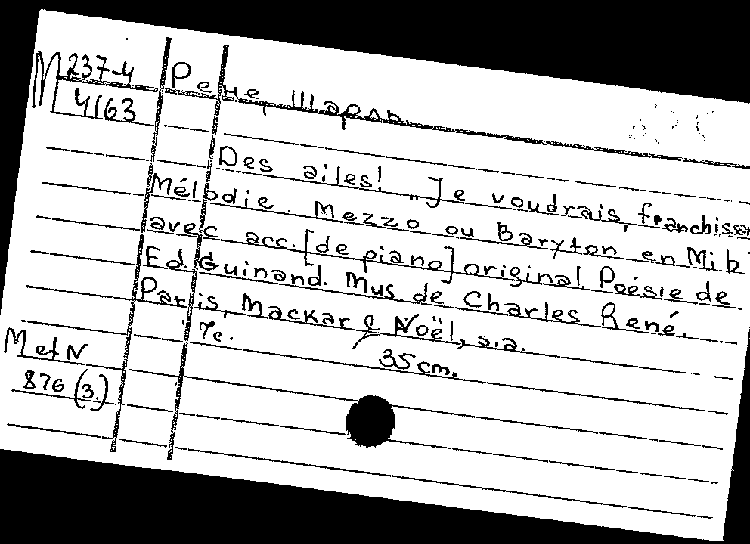 М 237-4 Рене, Шарль.
4163
Des ailes! „Je voudrais, franchissan
Mélodie. Mezzo ou Baryton en Mi b
avec acc. [de piano] original Poésie de
Ed. Guinand. Mus de Charles René.
Paris, Mackar & Noël, s.a.
7c. 35 cm.
M et N
876 (3.)